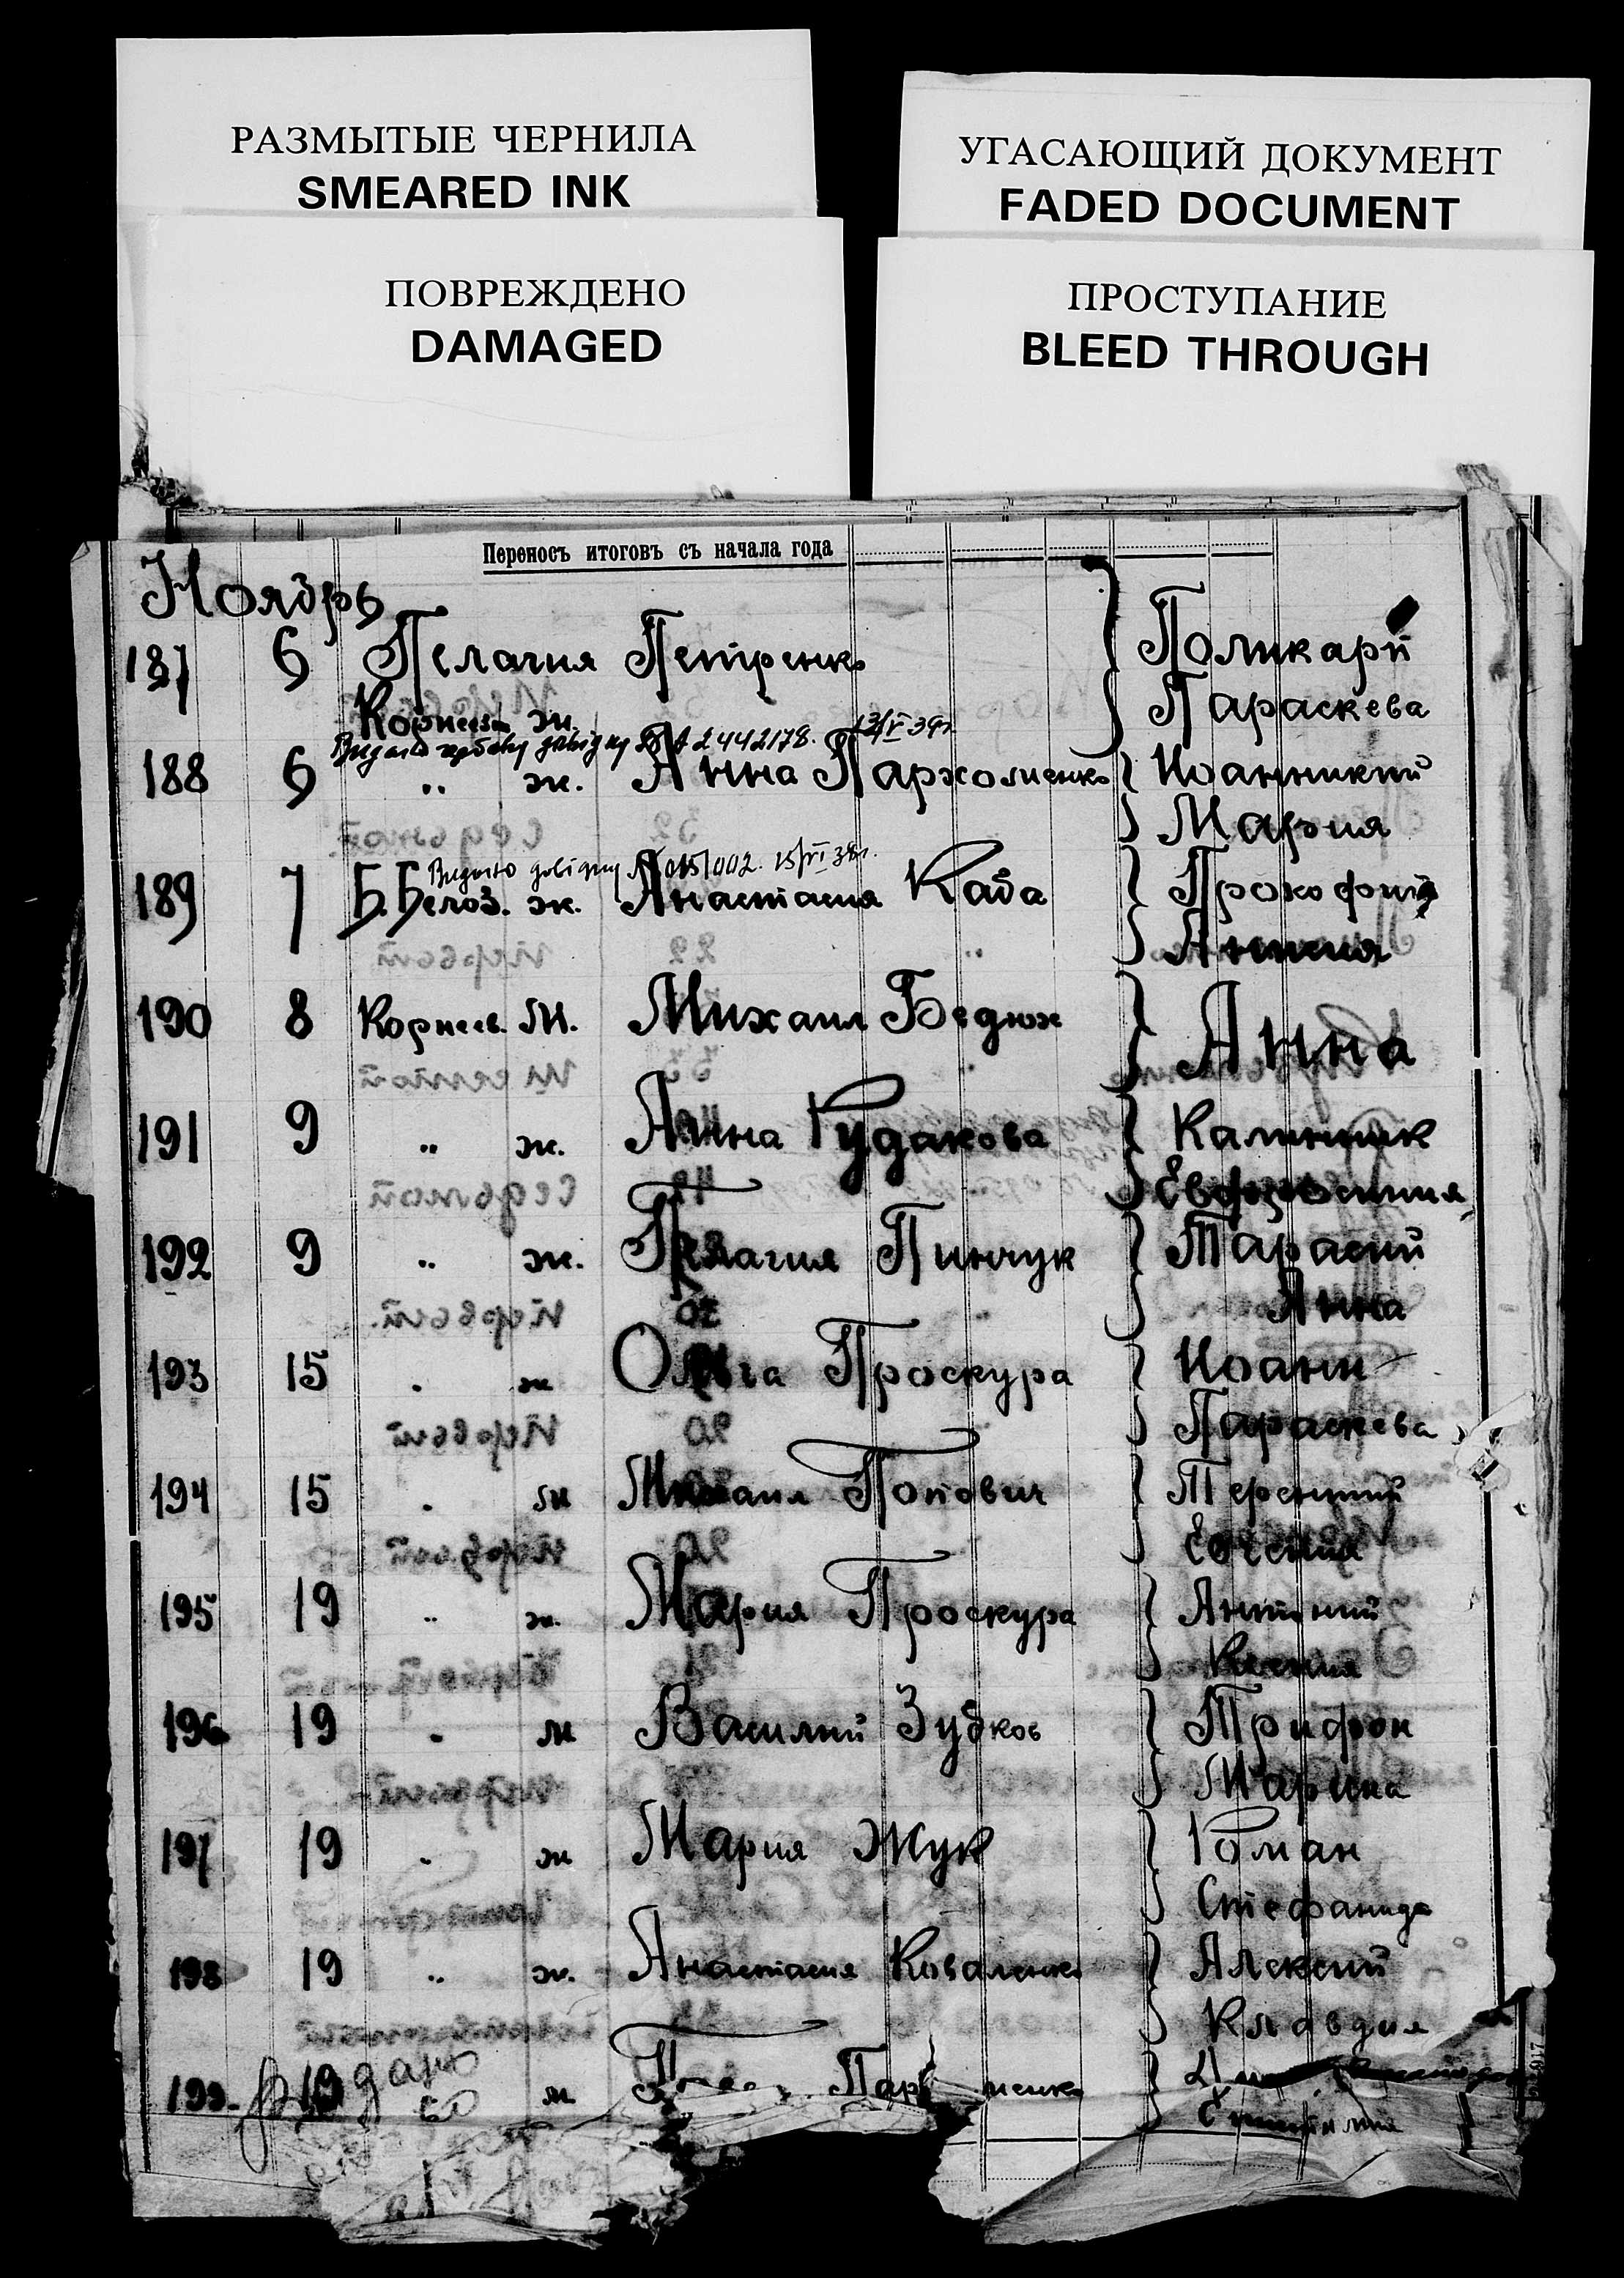 РАЗМЫТЫЕ ЧЕРНИЛА
SMEARED INK
ПОВРЕЖДЕНО
DAMAGED
УГАСАЮЩИЙ ДОКУМЕНТ
FADED DOCUMENT
ПРОСТУПАНИЕ
BLEED THROUGH
Переносъ итоговъ съ начала года
Ноябрь
187 6 Пелагия Петренко Поликарп
Корнеев ж. Параскева
№ 2442178.
188 6 " ж. Анна Пархоменко Иоанникий
Мария
Видано довідку № 015/002. 15/VI 38г.
189 7 Б. Белоз. ж. Анастасия Каба Прокофий
190 8 Корнеев. М. Михаил Бедюх Анна
191 9 " ж. Анна Рудакова Калинник
Евфросиния
192 9 " ж. Пелагия Пинчук Тарасий
Анна
193 15 " ж Ольга Проскура Иоанн
Параскева
194 15 " м Михаил Попович Терентий
Евгения
195 19 " ж. Мария Проскура Антоний
Ксения
196 19 " м Василий Зубков Трифон
Марина
197 19 " ж Мария Жук Роман
Стефанида
198 19 " ж. Анастасия Коваленко Алексий
Клавдия
199. 19 м
Видано